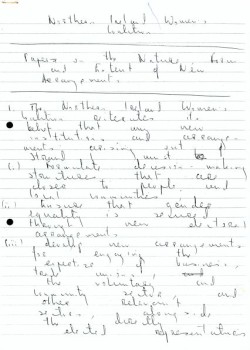 Northern Ireland Women's
Coalition
Papers on the Nature, Form
and Extent of New
Arrangements
1. The Northern Ireland Women's
Coalition articulates its
belief that any new
institutions and arrange-
ments arising out of
Strand 1 must
(i) formulate decision making
structures that are
closer to people and
local communities
(ii) Ensure that gender
equality is secured
through new electoral
arrangements.
(iii) develop new arrangements
for engaging the
expertise of business,
trade unions,
the voluntary and
community sectors and
other relevant
sectors, alongside
the directly
elected representatives